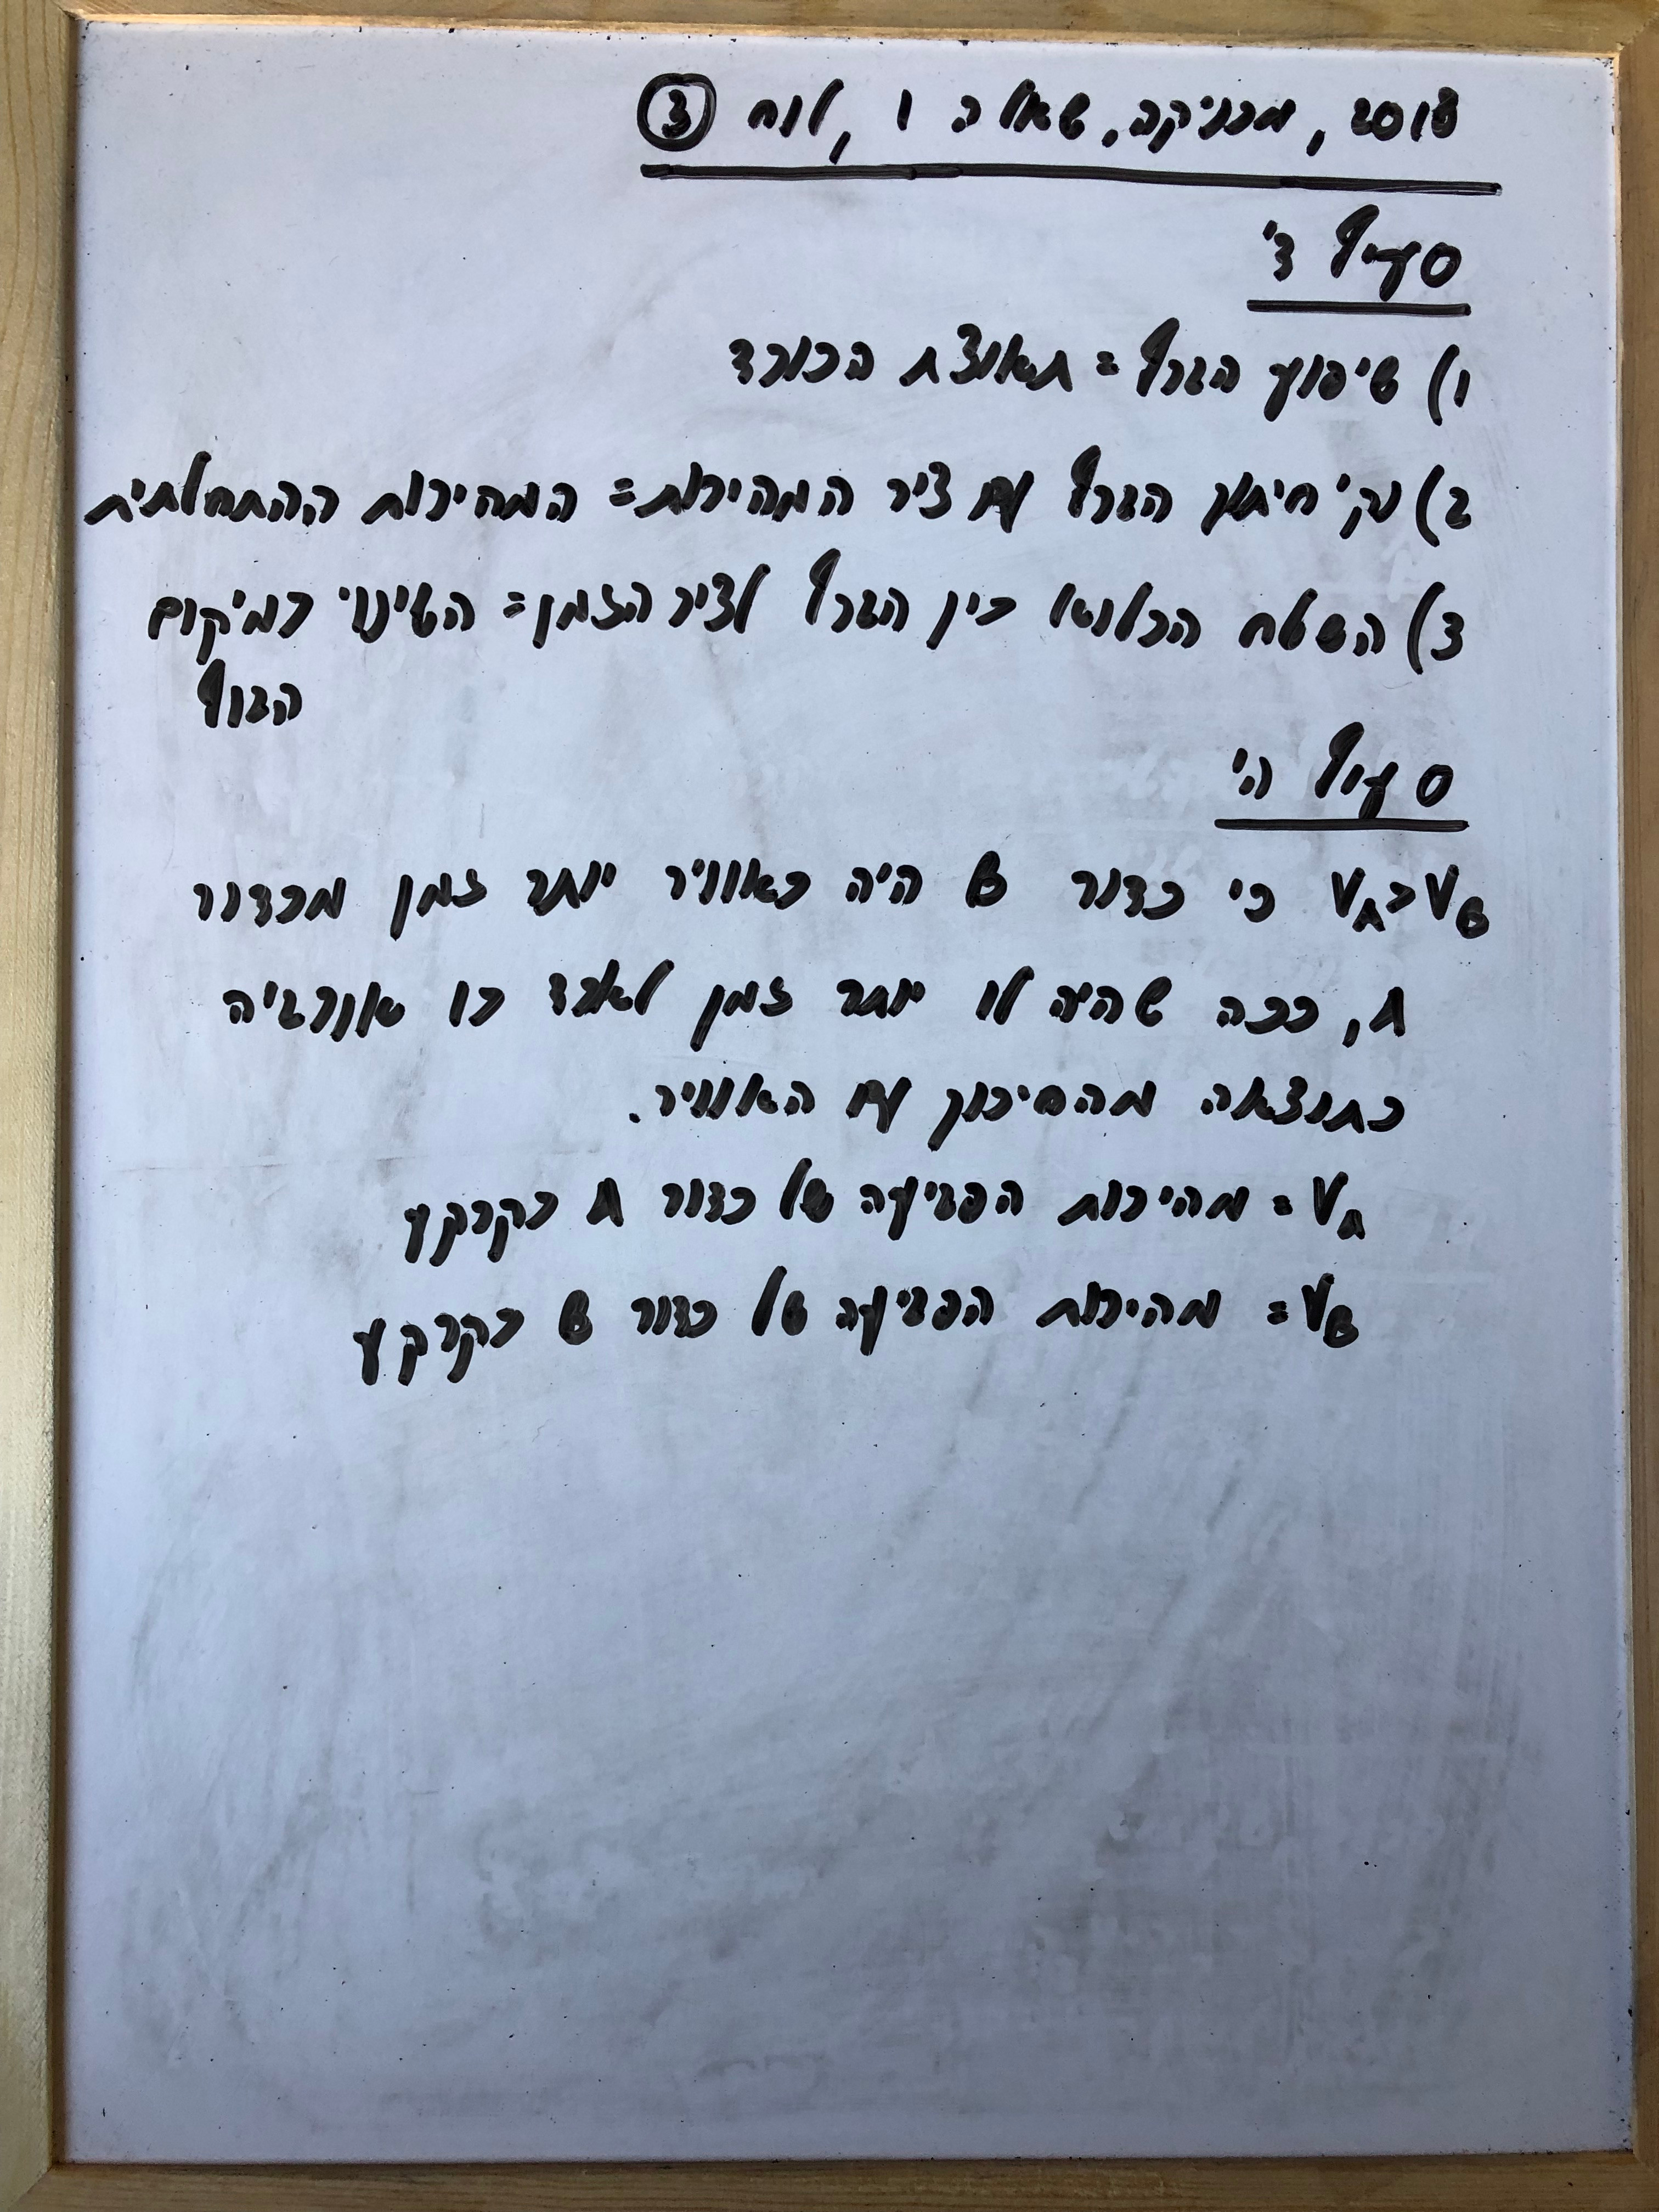 2018, מכניקה, שאלה 1, לוח 3
סעיף ד'
1) שיפוע הגרף = תאוצת הכובד
2) נק' חיתוך הגרף עם ציר המהירות = המהירות ההתחלתית
3) השטח הכלוא בין הגרף לציר הזמן = השינוי במיקום
הגוף
סעיף ה'
VA>VB כי כדור B היה באוויר יותר זמן מכדור
A, ככה שהיה לו יותר זמן לאבד בו אנרגיה
כתוצאה מהחיכוך עם האוויר.
VA = מהירות הפגיעה של כדור A בקרקע
VB = מהירות הפגיעה של כדור B בקרקע